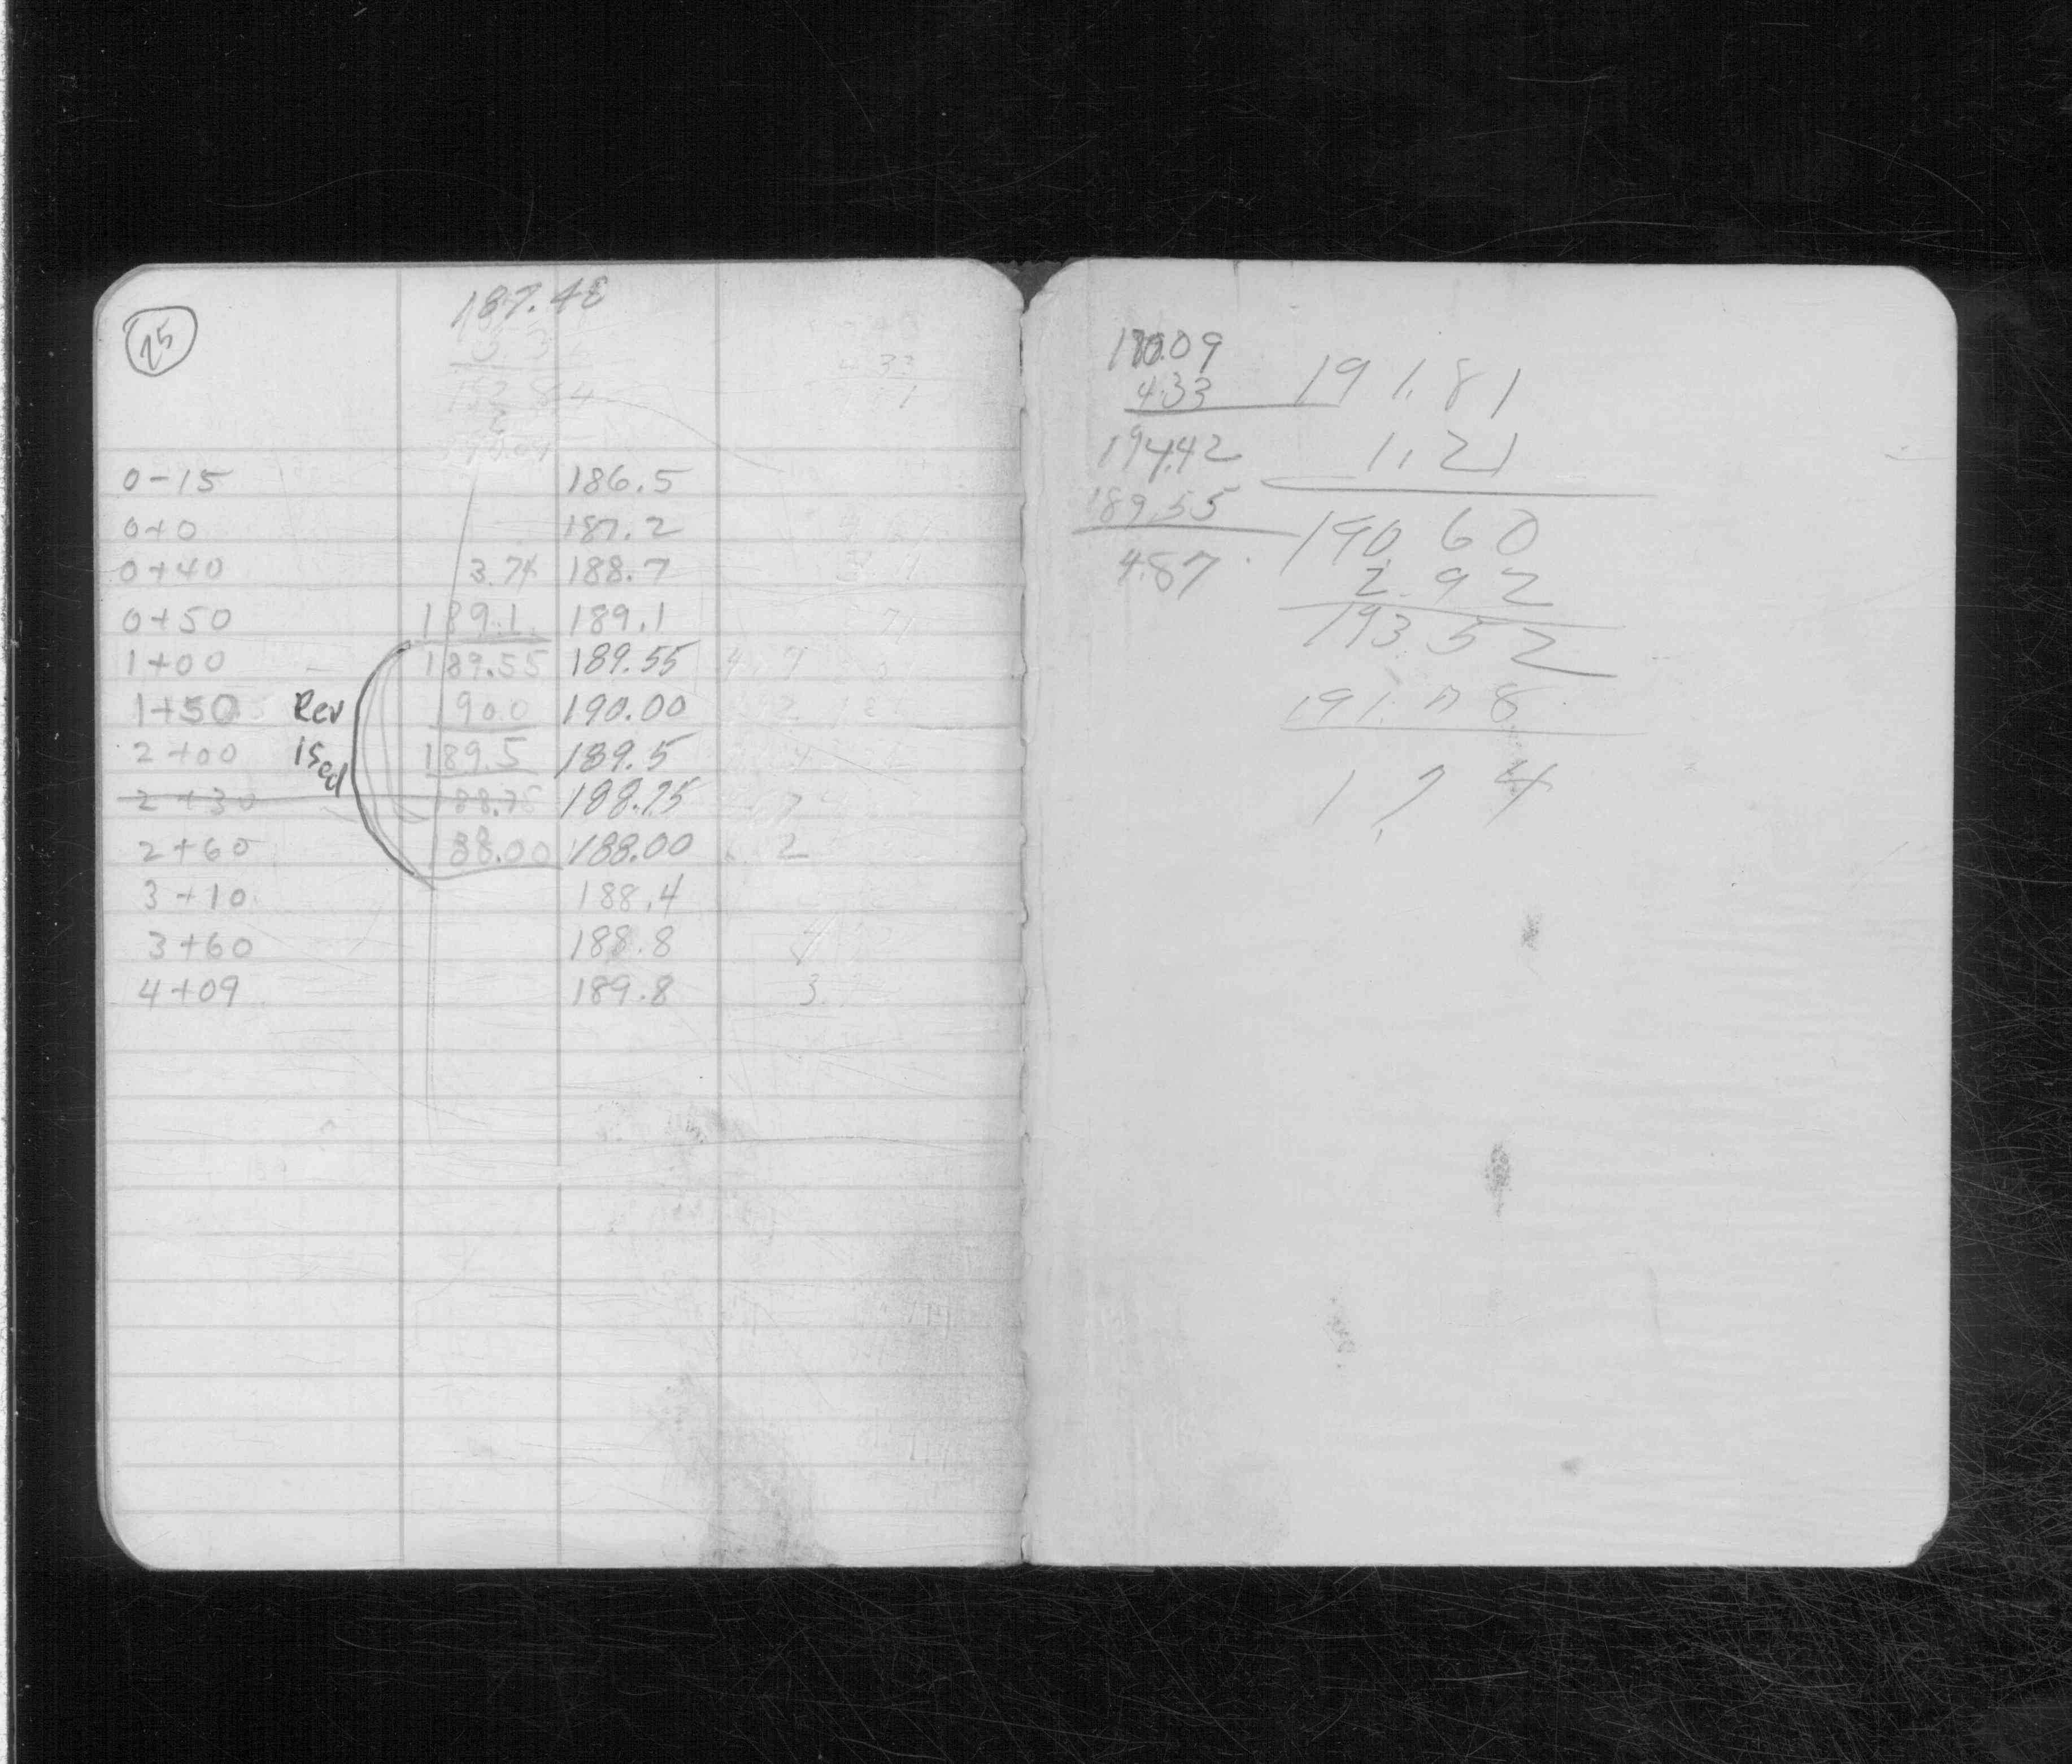 25
187.48
0-15 186.5
0+0 187.2
0+40 3.74 188.7
0+50 189.1 189.1
1+00 189.55 189.55
1+50 Rev 190.0 190.00
2+00 ised 189.5 189.5
2+30 188.75 188.75
2+60 188.00 188.00
3+10 188.4
3+60 188.8
4+09 189.8
190.09
4.33
194.42
189.55
4.87
191.81
1.21
190.60
2.92
193.52
191.78
1.74